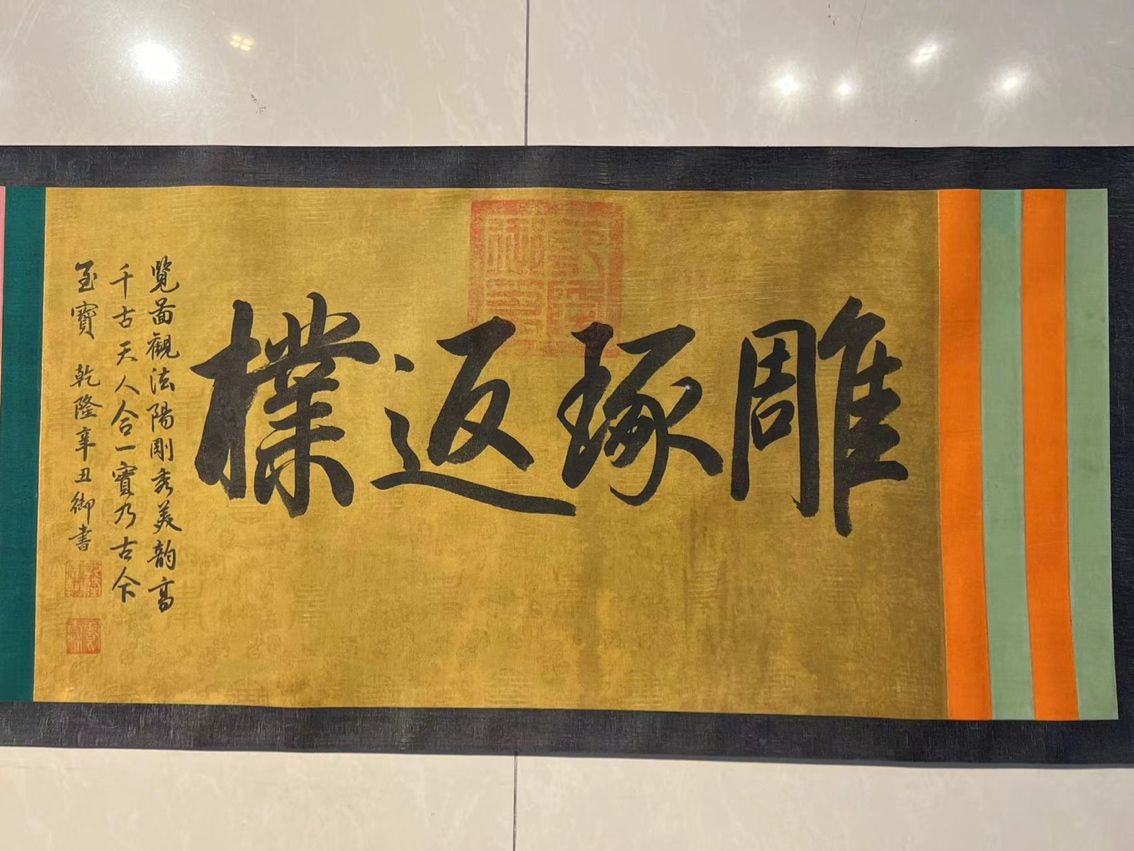 雕琢返樸
覽畣觀法陽剛秀美韵高
千古天人合一寶乃古今
至寶 乾隆辛丑御書